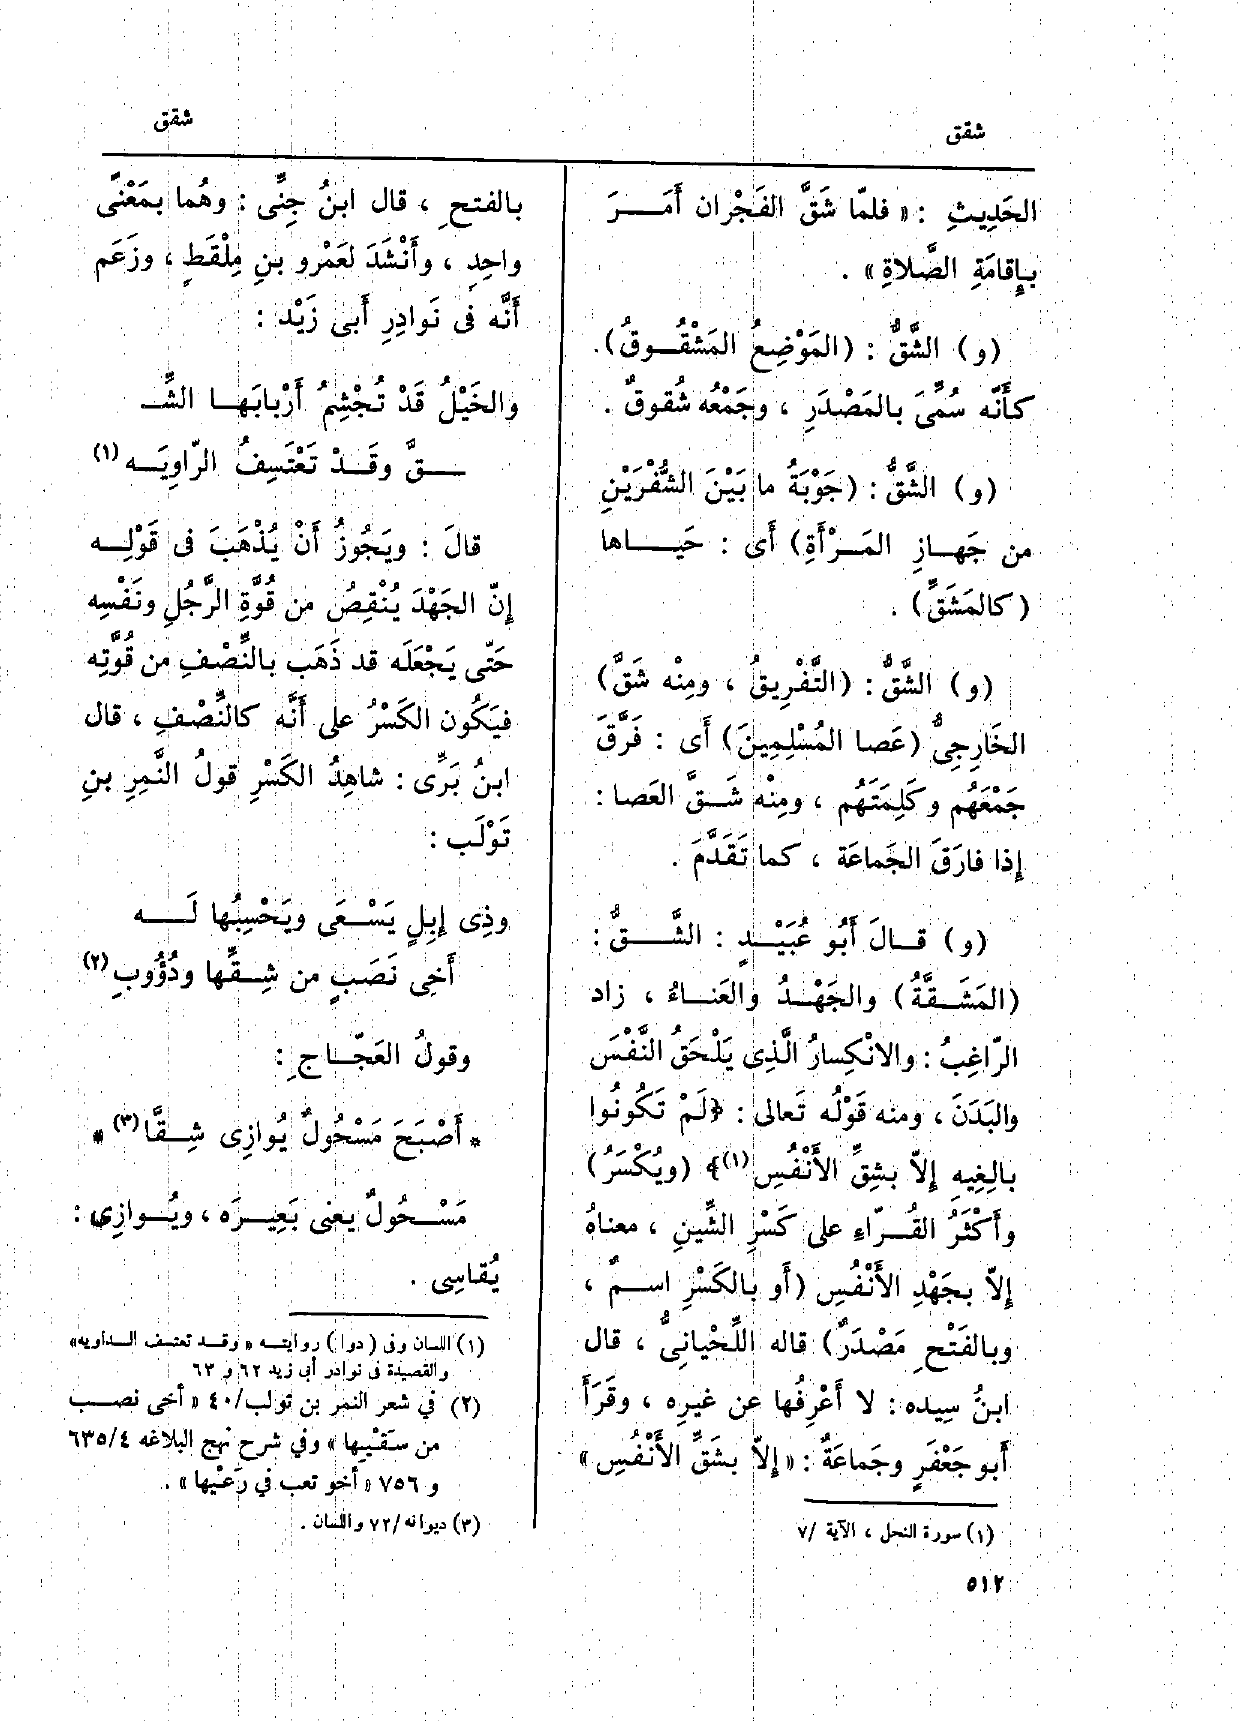 شقق
شقق
الحَدِيثِ : « فلمّا شَقَّ الفَجْران أَمَـــرَ
بإِقامَةِ الصَّلاةِ » .
(و) الشَّقُّ : (المَوْضِعُ المَشْقُــوقُ).
كأَنَّه سُمِّىَ بالمَصْدَرِ ، وجَمْعُه شُقوقٌ .
(و) الشَّقُّ : (جَوْبَةُ ما بَيْنَ الشُّفْرَيْنِ
من جَهــازِ المَــرْأَةِ) أَى : حَيــاها
(كالمَشَقِّ) .
(و) الشَّقُّ : (التَّفْرِيقُ ، ومِنْه شَقَّ)
الخَارِجِىُّ (عَصا المُسْلِمِينَ) أَى : فَرَّقَ
جَمْعَهُم وكَلِمَتَهُم ، ومِنْه شَــقَّ العَصا :
إِذا فارَقَ الجَماعَة ، كما تَقَدَّمَ .
(و) قــالَ أَبُو عُبَيْــدٍ : الشَّــقُّ :
(المَشَــقَّةُ) والجَهْــدُ والعَناءُ ، زاد
الرّاغِبُ : والانْكِسارُ الَّذِى يَلْحَقُ النَّفْسَ
والبَدَنَ ، ومنه قَوْلُه تَعالى : ﴿لَمْ تَكُونُوا
بالِغِيهِ إِلاّ بشِقِّ الأَنْفُسِ(١)﴾ (ويُكْسَرُ)
وأَكْثَرُ القُــرّاءِ على كَسْرِ الشِّينِ ، معناهُ
إِلاّ بجَهْدِ الأَنْفُسِ (أَو بالكَسْرِ اســمٌ ،
وبالفَتْحِ مَصْدَرٌ) قاله اللِّحْيانِىُّ ، قال
ابنُ سِيده : لا أَعْرِفُها عن غيرِه ، وقَرَأَ
أَبو جَعْفَرٍ وجَماعَةٌ : «إِلاّ بشَقِّ الأَنْفُسِ»
(١) سورة النحل ، الآية /٧
٥١٢
بالفتحِ ، قال ابنُ جِنِّى : وهُما بمَعْنًى
واحِدِ ، وأَنْشَدَ لعَمْرو بنِ مِلْقَطٍ ، وزَعَم
أَنَّه فى نَوادِرِ أَبى زَيْد :
والخَيْلُ قَدْ تُجْشِمُ أَرْبابَهــا الشِّـ
ــقَّ وقَــدْ تَعْتَسِفُ الرّاوِيَــه(١)
قالَ : ويَجُوزُ أَنْ يُذْهَبَ فى قَوْلِــه
إِنّ الجَهْدَ يُنْقِصُ من قُوَّةِ الرَّجُلِ ونَفْسِه
حَتّى يَجْعَلَه قد ذَهَب بالنِّصْفِ من قُوَّتِه
فيَكُون الكَسْرُ على أَنَّه كالنِّصْفِ ، قال
ابنُ بَرِّى : شاهِدُ الكَسْرِ قولُ النَّمِرِ بنِ
تَوْلَب :
وذِى إِبِلٍ يَسْــعَى ويَحْسِبُها لَــه
أَخِى نَصَبٍ من شِــقِّها ودُؤُوبِ(٢)
وقولُ العَجّــاجِ :
* أَصْبَحَ مَسْحُولٌ يُوازِى شِــقَّا(٣) *
مَسْــحُولٌ يعنى بَعِيــرَه ، ويُــوازِى :
يُقاسِى .
(١) اللسان وفى (دوا) روايتــه « وقــد تعتسف الــداويه»
والقصيدة فى نوادر أبى زيد ٦٢ و ٦٣
(٢) في شعر النمر بن تولب /٤٠ « أخى نصــب
من سَقْيِها » وفي شرح نهج البلاغه ٦٣٥/٤
و ٧٥٦ « أخو تعب في رَعْيِها » .
(٣) ديوانه /٧٢ واللسان .